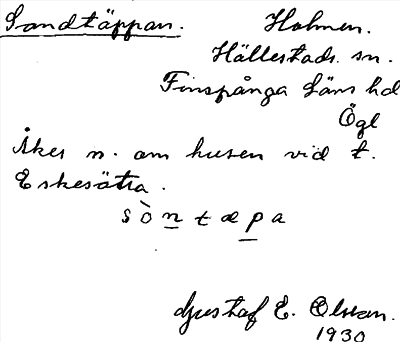 Sandtäppan. Holmen.
Hällestads. sn.
Finspånga Läns hd
Ögl
Åker n. om husen vid t.
Eskesätra.
sòntæpa
Gustaf E. Olsson.
1930